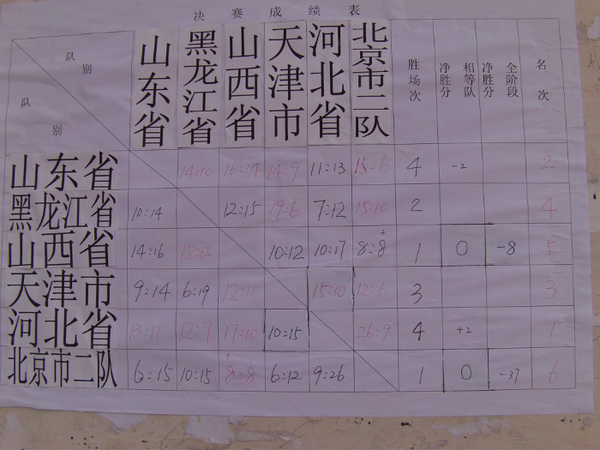 决赛成绩表
队别 队别 山东省 黑龙江省 山西省 天津市 河北省 北京市二队 胜场次 净胜分 相等队 净胜分 全阶段 名次
山东省 14:10 16:14 14:9 11:13 15:6 4 -2 2
黑龙江省 10:14 12:15 19:6 7:12 15:10 2 4
山西省 14:16 15:12 10:12 10:17 8:8 1 0 -8 5
天津市 9:14 6:19 12:10 15:10 12:6 3 3
河北省 13:11 12:7 17:10 10:15 26:9 4 +2 1
北京市二队 6:15 10:15 8:8 6:12 9:26 1 0 -37 6